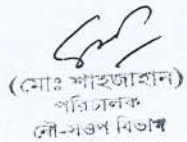 (মোঃ শাহজাহান)
পরিচালক
নৌ-সওপ বিভাগ